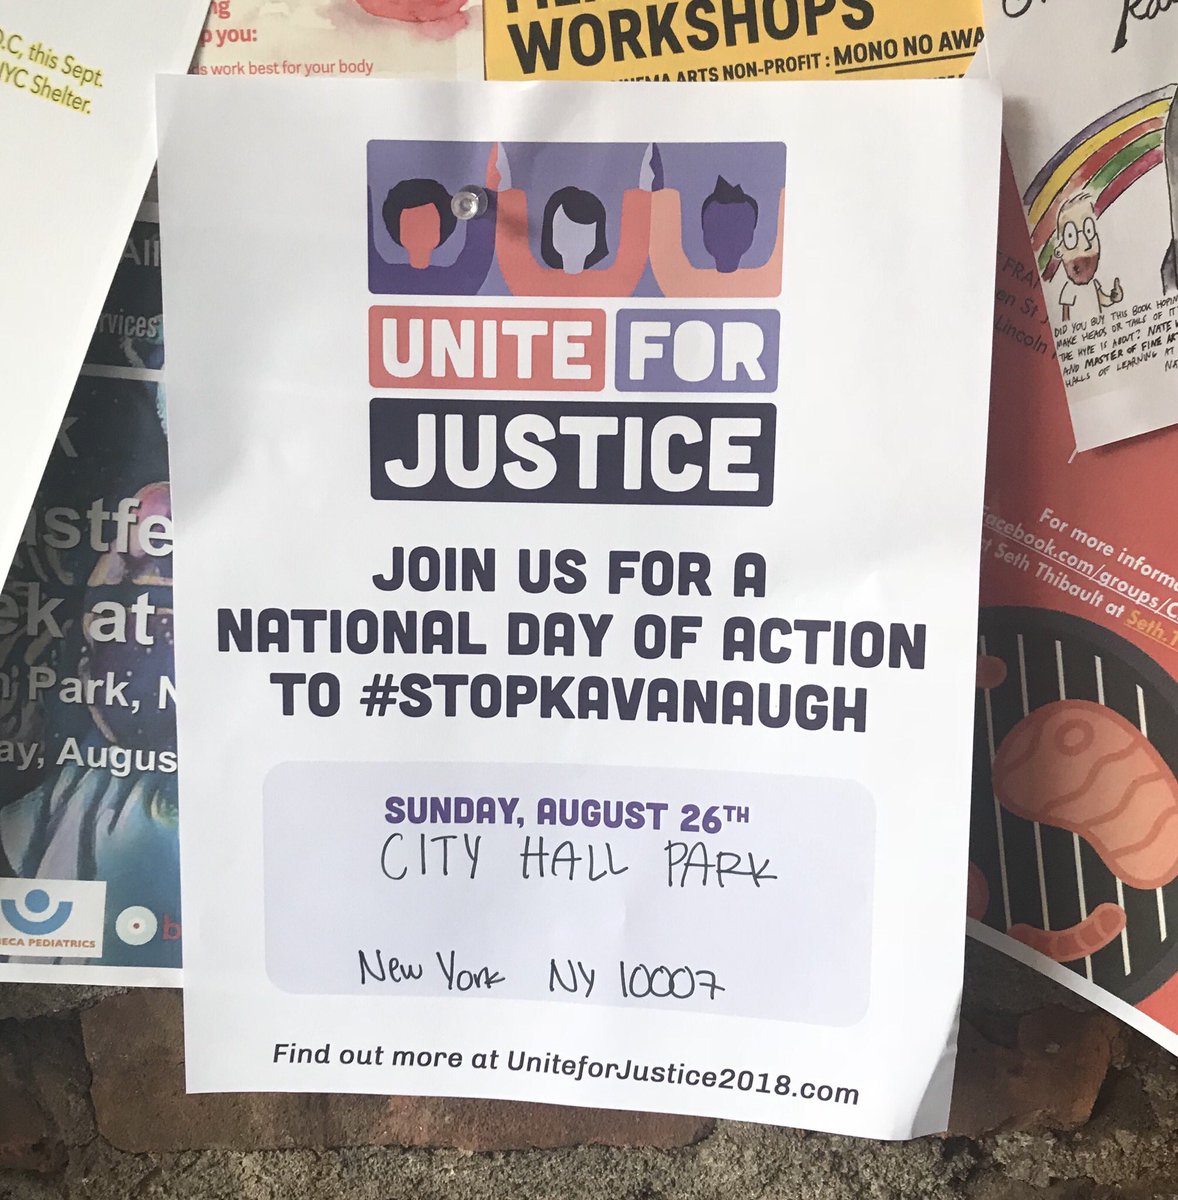 ng
p you:
s work best for your body
WORKSHOPS
CINEMA ARTS NON-PROFIT : MONO NO AWA
D.C, this Sept.
NYC Shelter.
UNITE FOR
JUSTICE
JOIN US FOR A
NATIONAL DAY OF ACTION
TO #STOPKAVANAUGH
SUNDAY, AUGUST 26TH
CITY HALL PARK
New York NY 10007
Find out more at UniteforJustice2018.com
All
rvices
stfe
ek at
Park, N
ay, Augus
ECA PEDIATRICS
b
FRA
en St
Lincoln
DID YOU BUY THIS BOOK HOPIN
MAKE HEADS OR TAILS OF IT
THE HYPE IS ABOUT? NATE W
AND MASTER OF FINE AR
HALLS OF LEARNING AT
NA
For more informa
facebook.com/groups/C
t Seth Thibault at Seth.T